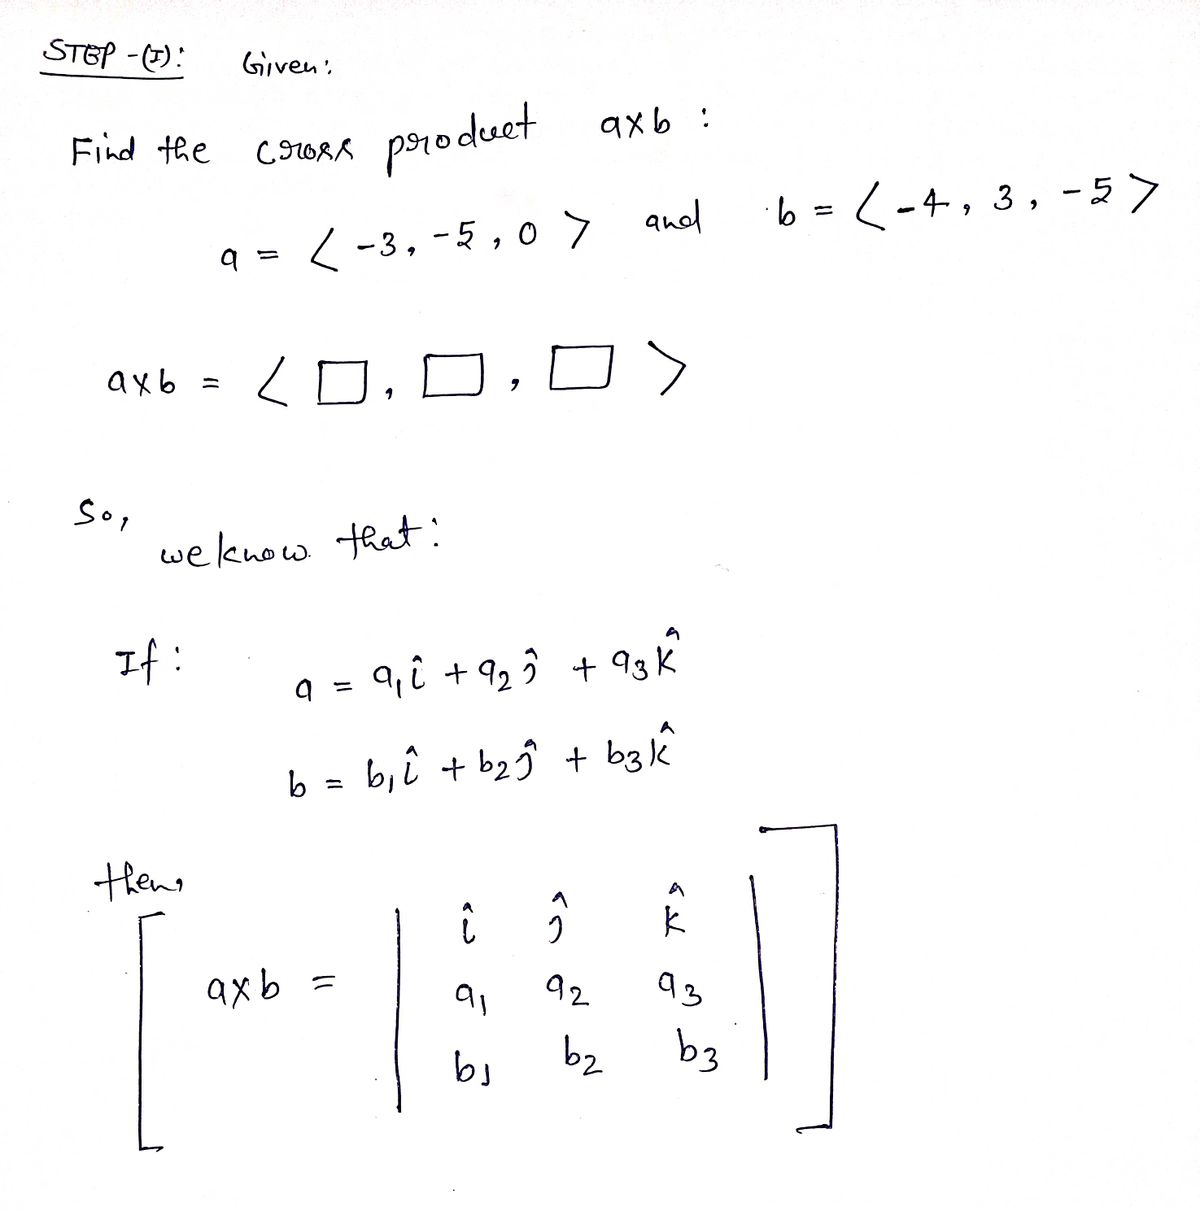 STEP-(I): Given:
Find the cross product axb :
a = < -3, -5, 0 > and b = < -4, 3, -5 >
axb = < □, □, □ >
So,
we know that:
If: a = a₁î + a₂ĵ + a₃k̂
b = b₁î + b₂ĵ + b₃k̂
then,
î ĵ k̂
axb = a₁ a₂ a₃
b₁ b₂ b₃